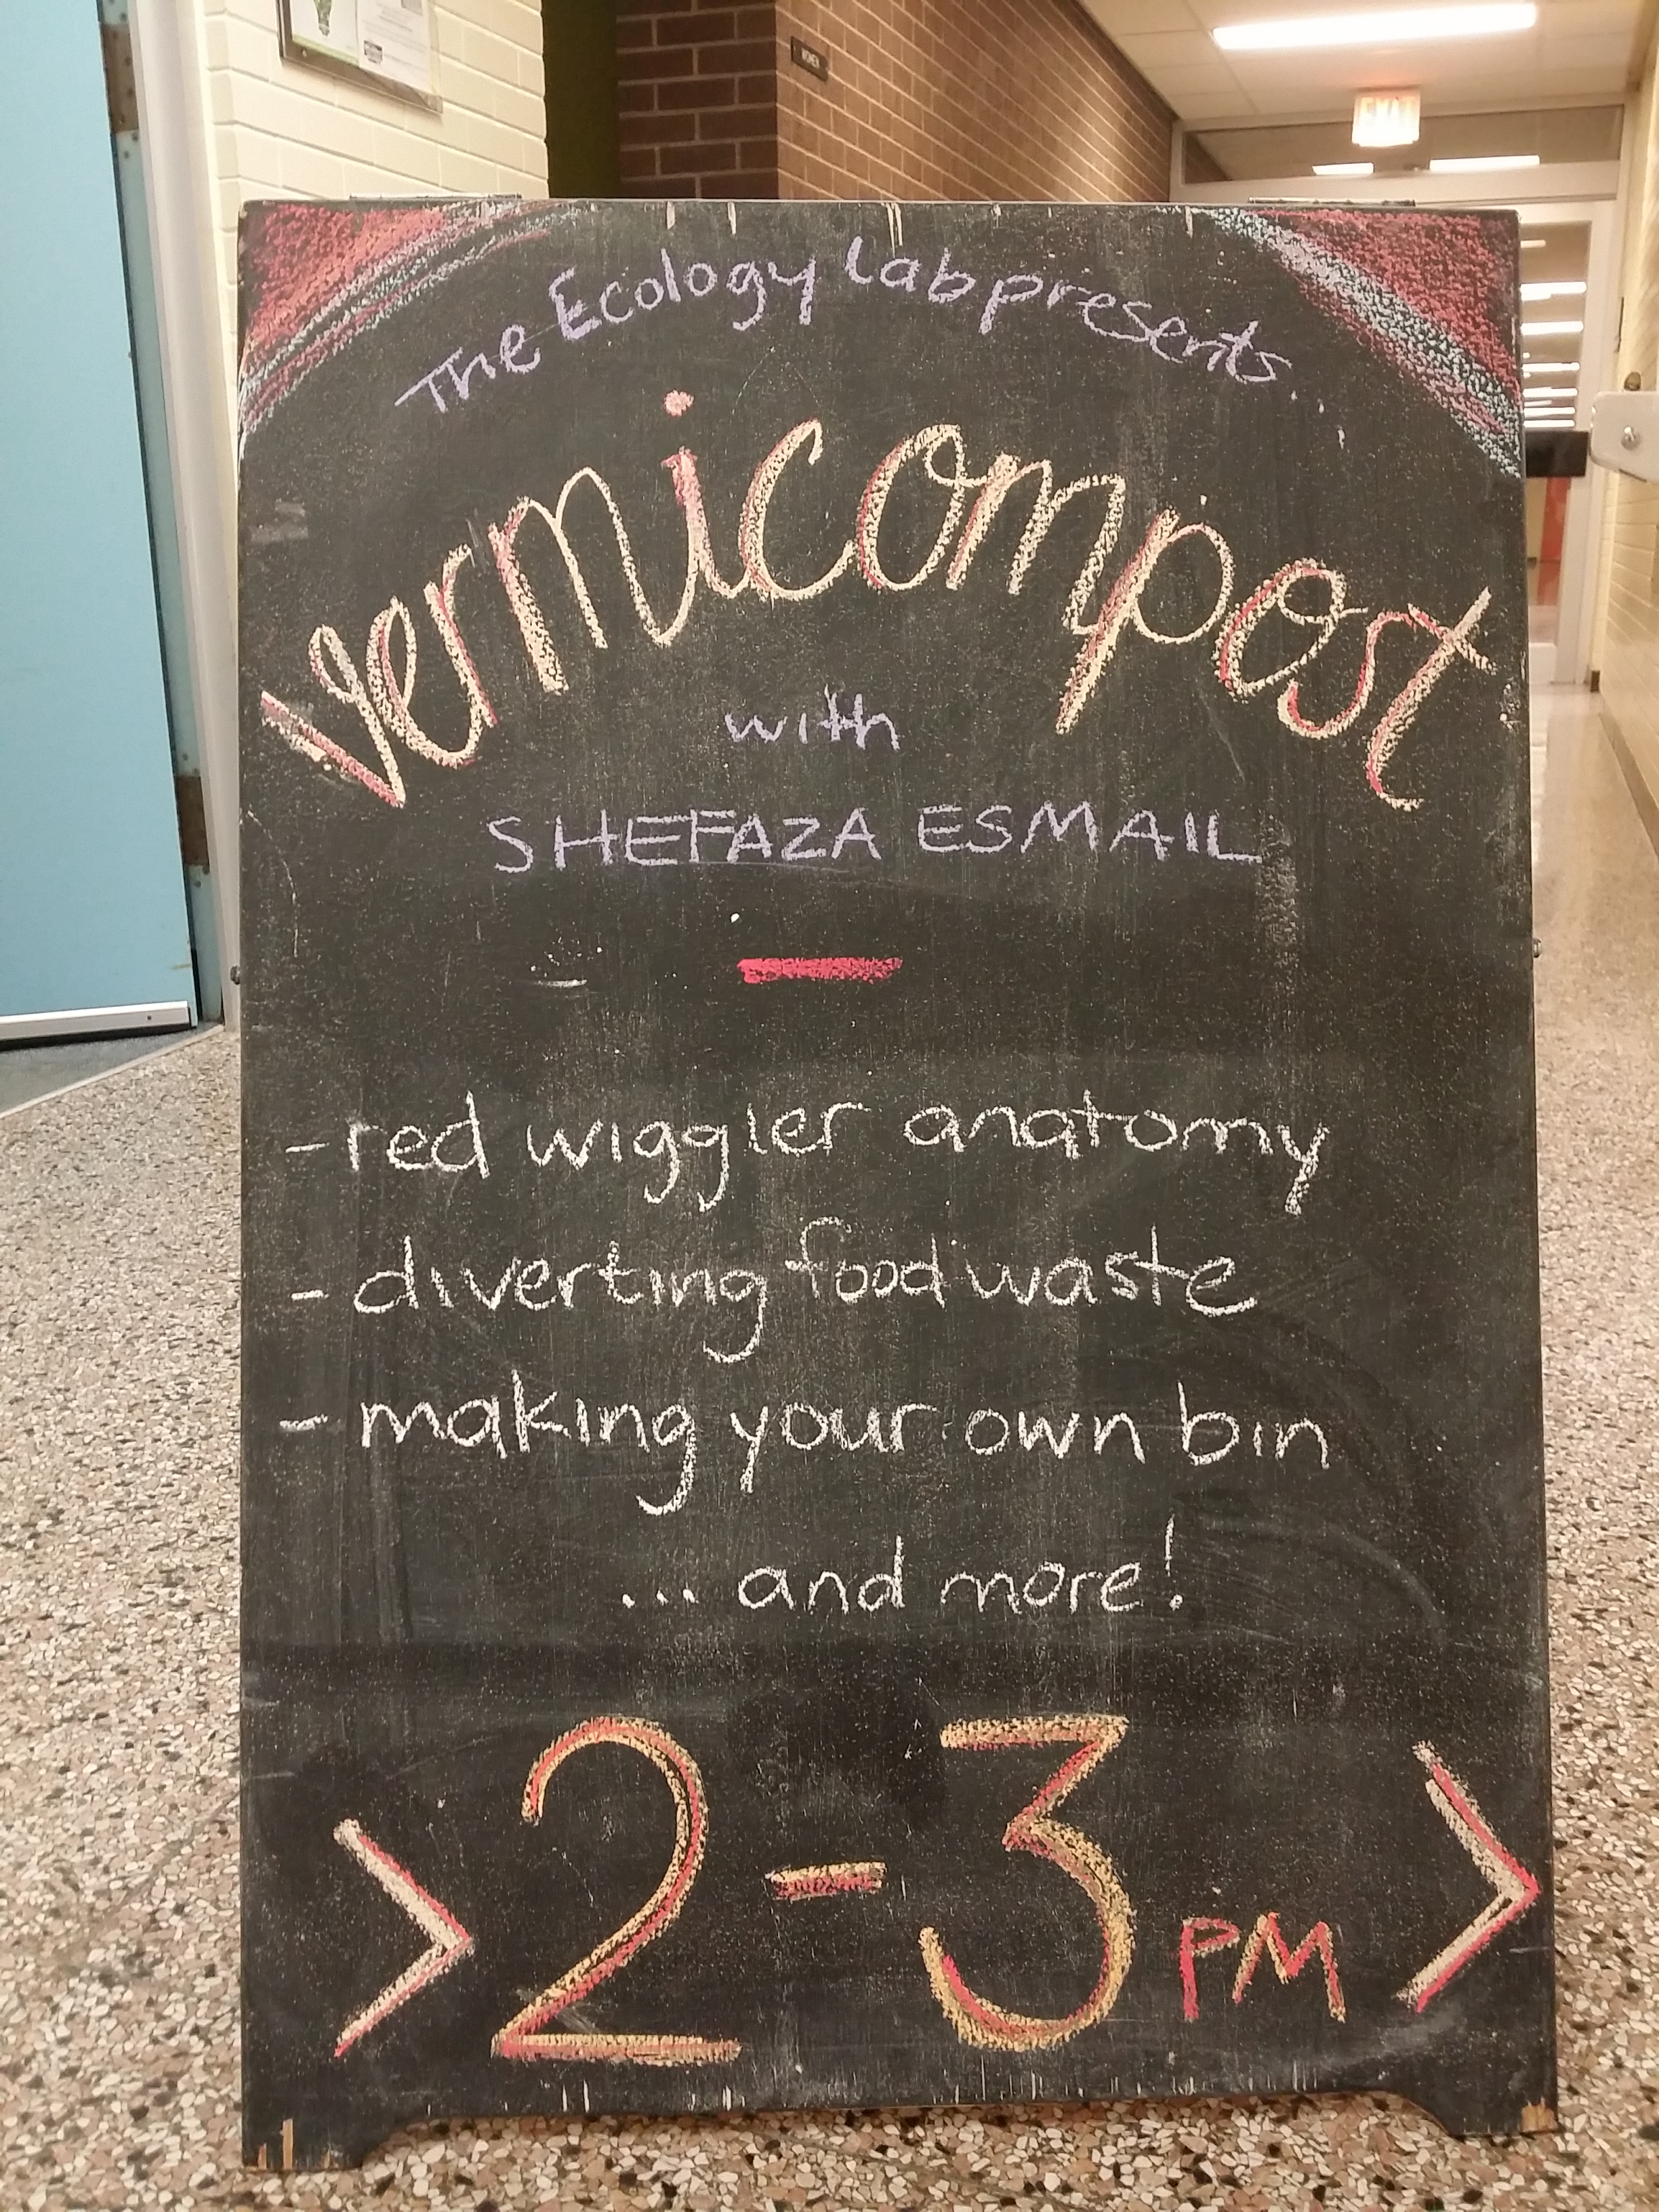 WOMEN
EXIT
The Ecology Lab presents
vermicompost
with
SHEFAZA ESMAIL
- red wiggler anatomy
- diverting food waste
- making your own bin
... and more!
> 2-3 PM >